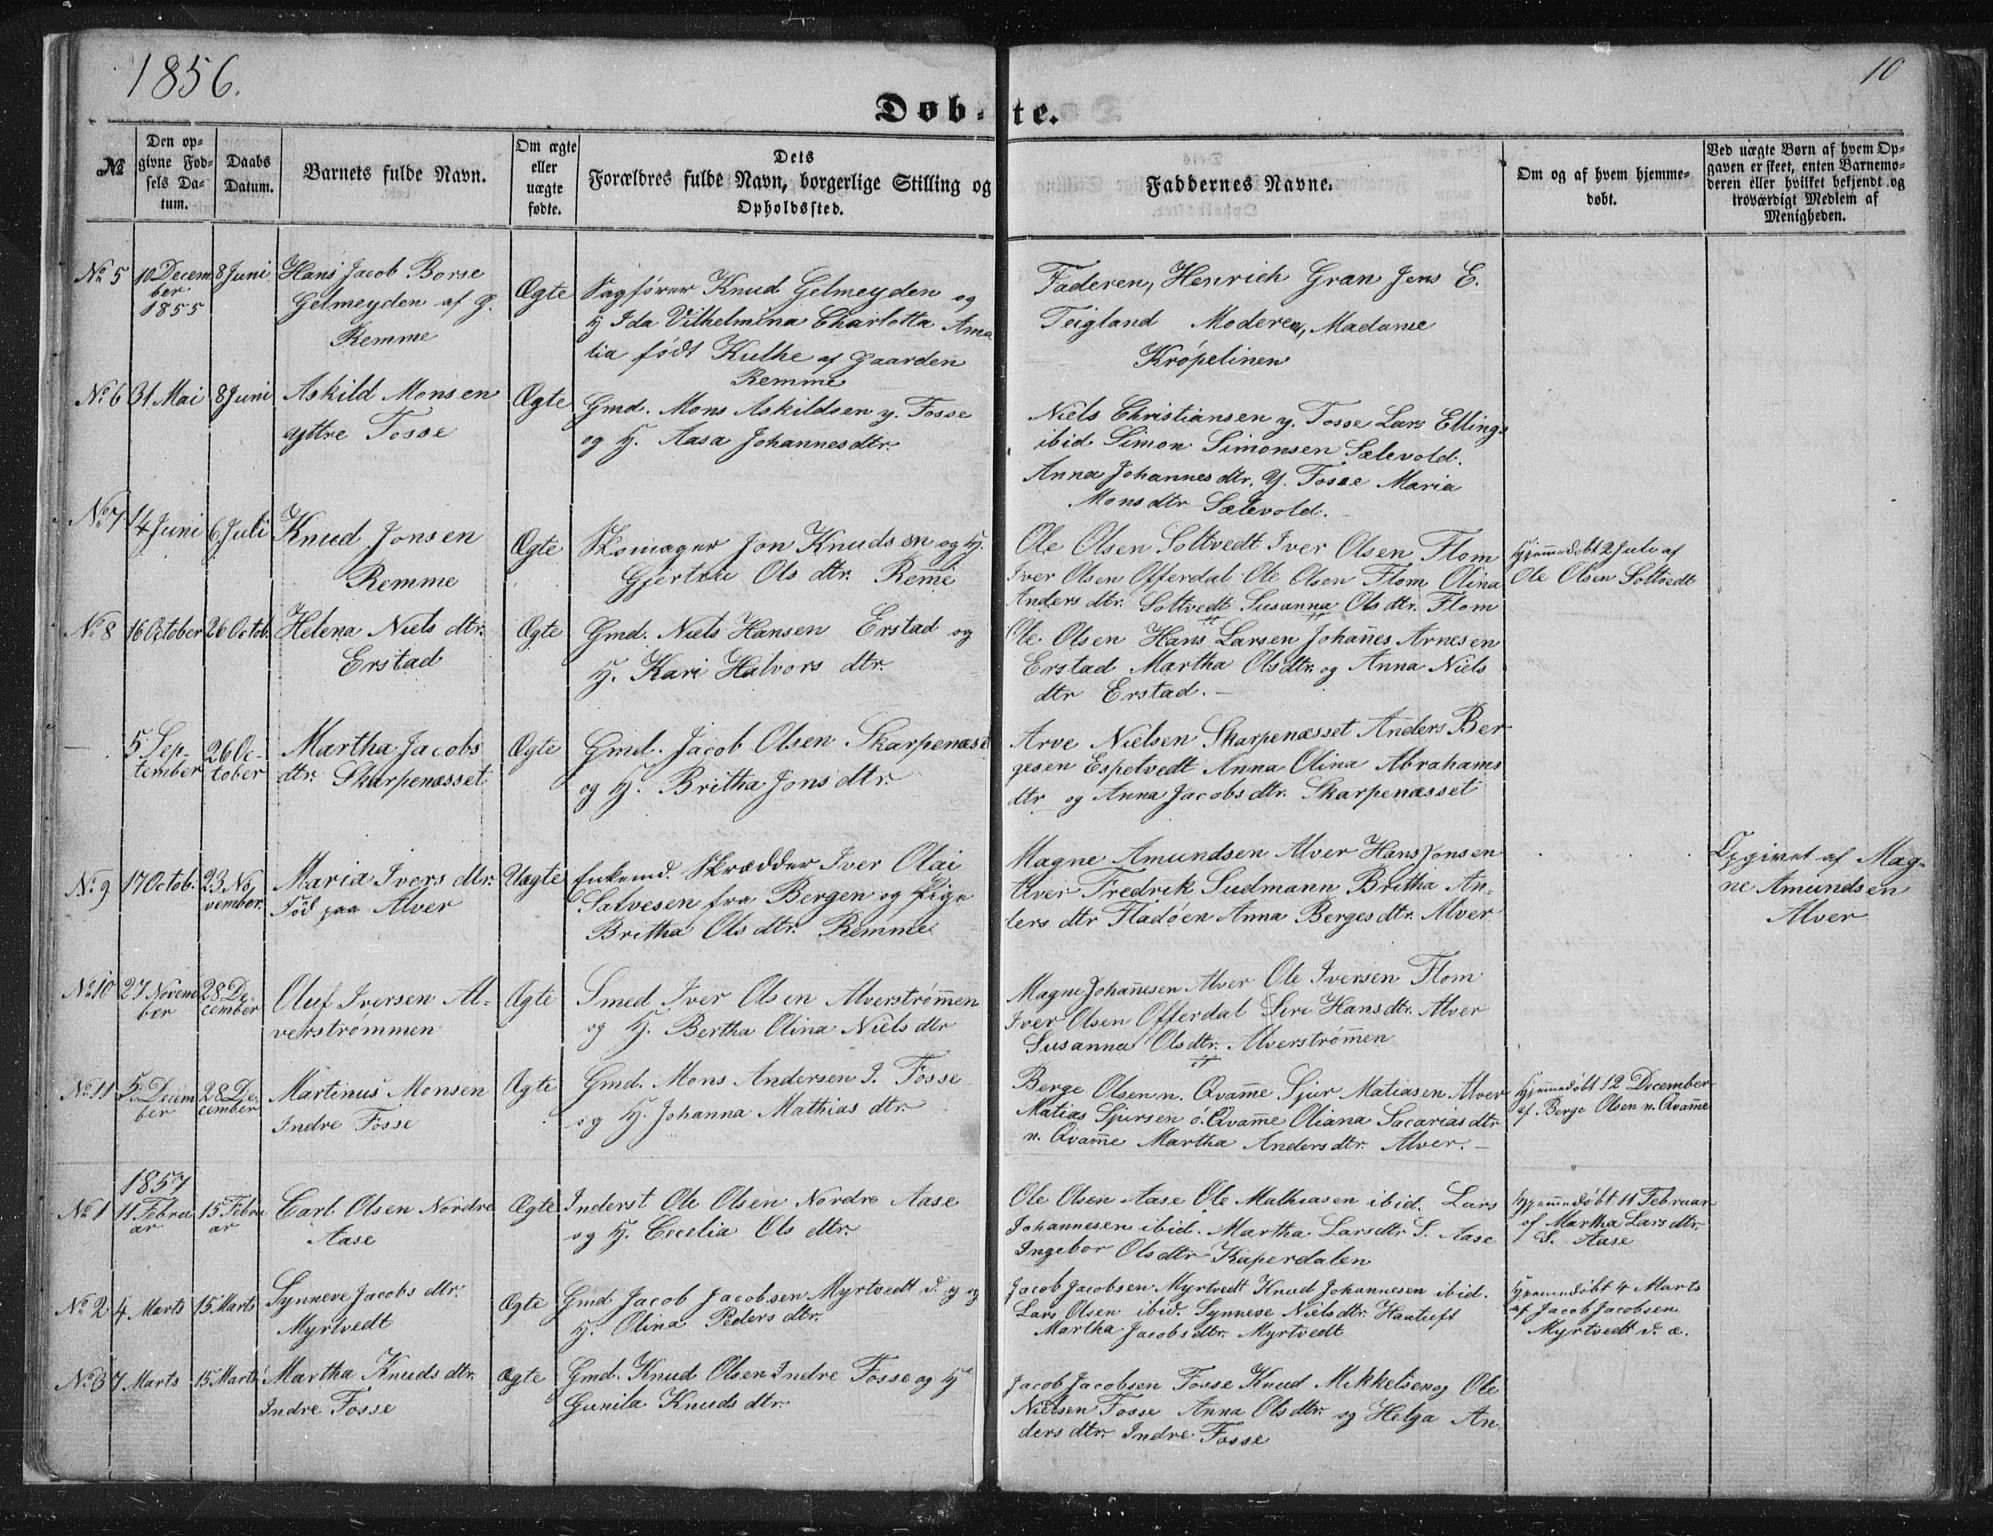 1856.
10
Døb-te.
No
Den op-
givne Fød-
sels Da-
tum.
Daabs
Datum.
Barnets fulde Navn.
Om ægte
eller
uægte
fødte.
Dets
Forældres fulde Navn, borgerlige Stilling og
Opholdssted.
Faddernes Navne.
Om og af hvem hjemme-
døbt.
Ved uægte Børn af hvem Op-
gaven er skeet, enten Barnemo-
deren eller hvilket bekjendt og
troværdigt Medlem af
Menigheden.
No 5
10 Decem
ber
1855
8 Juni
Hans Jacob Borse
Gelmeyden af G.
Remme
Ægte
Sagfører Knud Gelmeyden og
H Ida Vilhelmina Charlotta Ama
lia født Kuthe af Gaarden
Remme
Faderen, Henrich Gran Jens E.
Teigland Moderen, Madame
Krøpelinen
No 6
31 Mai
8 Juni
Askild Monsen
yttre Fosse
Ægte
Gmd. Mons Askildsen y. Fosse
og H. Aasa Johannesdtr.
Niels Christiansen y. Fosse Lars Ellings
ibid Simon Simonsen Sælevold.
Anna Johannesdtr. Y. Fosse Maria
Monsdtr Sælevold.
No 7
14 Juni
6 Juli
Knud Jonsen
Remme
Ægte
Skomager Jon Knudsen og H.
Gjertru Ols dtr. Remme
Ole Olsen Soltvedt Iver Olsen Flom
Iver Olsen Offerdal Ole Olsen Flom Olina
Anders dtr. Soltvedt Susanna Olsdtr. Flom
Hjemmedøbt 2 Juli af
Ole Olsen Soltvedt
No 8
16 October
26 Octob.
Helena Niels dtr.
Erstad
Ægte
Gmd. Niels Hansen Erstad og
H. Kari Halvors dtr.
Ole Olsen Hans Larsen Johannes Arnesen
Erstad Martha Olsdtr. og Anna Niels
dtr Erstad.
-
5 Sep-
tember
26 Oc-
tober
Martha Jacobs
dtr. Skarpenæsset
Ægte
Gmd. Jacob Olsen Skarpenæs
og H. Britha Jons dtr.
Arve Nielsen Skarpenæsset Anders Ber
gesen Espetvedt Anna Olina Abrahams
dtr og Anna Jacobsdtr. Skarpenæsset
No 9
17 Octob.
23 No
vember.
Maria Ivers dtr.
Fød paa Alver
Uægte
Enkemd. Skrædder Iver Olai
Salvesen fra Bergen og Pige
Britha Ols dtr. Remme
Magne Amundsen Alver Hans Jonsen
Alver Fredrik Sudmann Britha An-
ders dtr Fladøen Anna Bergesdtr. Alver
Opgivet af Mag-
ne Amundsen
Alver
No 10
27 Novem
ber
28 De-
cember
Oluf Iversen Al-
verstrømmen
Ægte
Smed Iver Olsen Alverstrømmen
og H. Bertha Olina Niels dtr
Magne Johannesen Alver Ole Iversen Flom
Iver Olsen Offerdal Siri Hansdtr. Alver
Susanna Olsdtr. Alverstrømmen
No 11
5 Decem
ber
28 De-
cember
Martinus Monsen
Indre Fosse
Ægte
Gmd. Mons Andersen I. Fosse
og H. Johanna Mathias dtr.
Berge Olsen n. Qvamme Sjur Matiasen Alver
Matias Sjursen ö. Qvamme Oliana Sacarias dtr
n. Qvamme Martha Anders dtr. Alver.
Hjemmedøbt 12 December
af Berge Olsen n. Qvamme
1857
No 1
11 Febru
ar
15 Febru
ar
Carl Olsen Nordre
Aase
Ægte
Inderst Ole Olsen Nordre Aase
og H. Cecelia Ols dtr.
Ole Olsen Aase Ole Mathiasen ibid. Lars
Johannesen ibid. Martha Larsdtr S. Aase
Ingebor Olsdtr Kaperdalen
Hjemmedøbt 11 Februar
af Martha Lars dtr.
S. Aase
No 2
4 Marts
15 Marts
Synneve Jacobs dtr.
Myrtvedt
Ægte
Gmd Jacob Jacobsen Myrtvedt d. y og
H. Olina Peders dtr.
Jacob Jacobsen Myrtvedt Knud Johannesen ibid.
Lars Olsen ibid. Synneve Nielsdtr. Hautuft
Martha Jacobsdtr. Myrtvedt
Hjemmedøbt 4 Marts
af Jacob Jacobsen
Myrtvedt d. æ.
No 3
7 Marts
15 Marts
Martha Knuds dtr.
Indre Fosse
Ægte
Gmd. Knud Olsen Indre Fosse og H
Gunila Knuds dtr.
Jacob Jacobsen Fosse Knud Mikkelsen og Ole
Nielsen Fosse Anna Olsdtr. og Helga An-
ders dtr. Indre Fosse